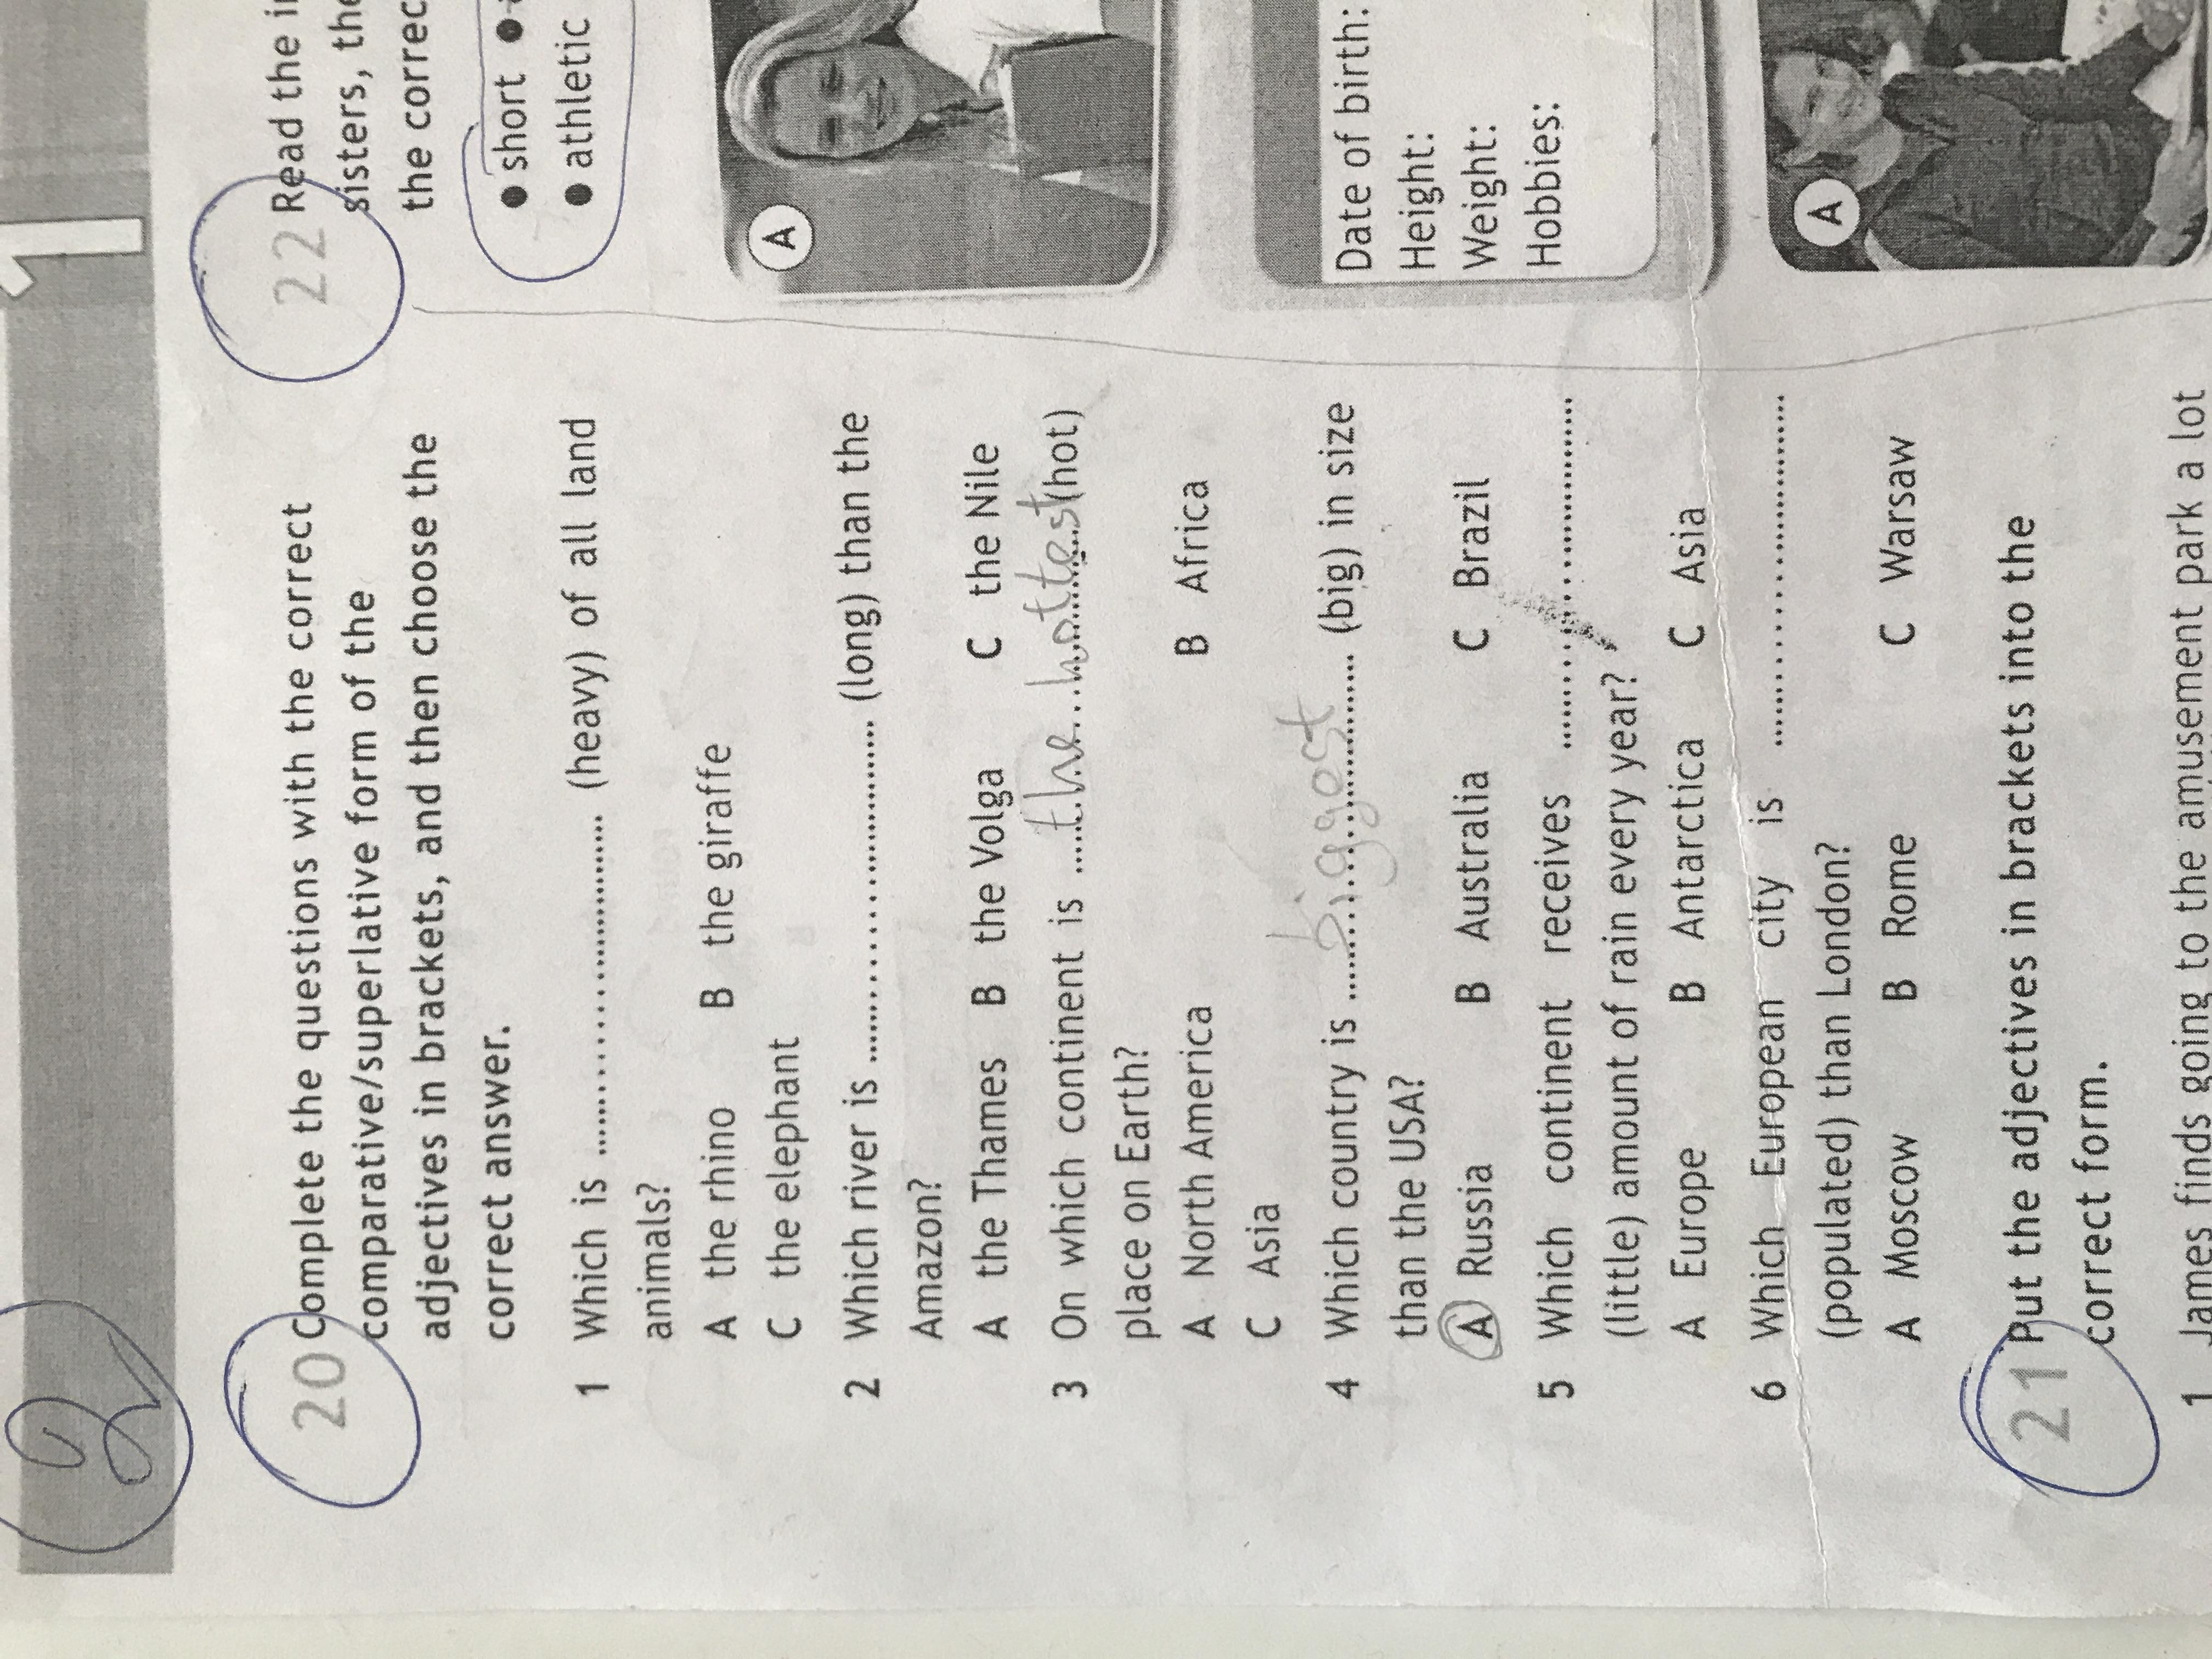 2
1
20 Complete the questions with the correct
comparative/superlative form of the
adjectives in brackets, and then choose the
correct answer.
1 Which is .................... (heavy) of all land
animals?
A the rhino B the giraffe
C the elephant
2 Which river is .................... (long) than the
Amazon?
A the Thames B the Volga C the Nile
3 On which continent is the hottest (hot)
place on Earth?
A North America B Africa
C Asia
4 Which country is biggest (big) in size
than the USA?
A Russia B Australia C Brazil
5 Which continent receives ....................
(little) amount of rain every year?
A Europe B Antarctica C Asia
6 Which European city is ....................
(populated) than London?
A Moscow B Rome C Warsaw
21 Put the adjectives in brackets into the
correct form.
1 James finds going to the amusement park a lot
22 Read the
sisters, the
the correc
• short •
• athletic
A
Date of birth:
Height:
Weight:
Hobbies:
A